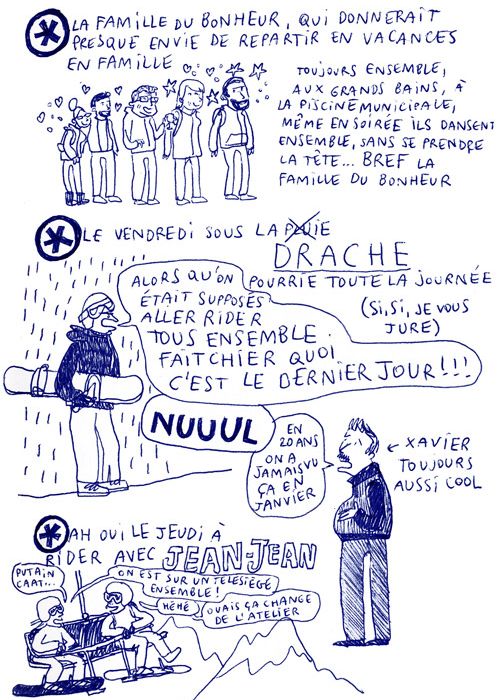 LA FAMILLE DU BONHEUR, QUI DONNERAIT
PRESQUE ENVIE DE REPARTIR EN VACANCES
EN FAMILLE
TOUJOURS ENSEMBLE,
AUX GRANDS BAINS, À
LA PISCINE MUNICIPALE,
MÊME EN SOIRÉE ILS DANSENT
ENSEMBLE, SANS SE PRENDRE
LA TÊTE... BREF LA
FAMILLE DU BONHEUR
LE VENDREDI SOUS LA PLUIE
DRACHE
POURRIE TOUTE LA JOURNÉE
(SI, SI, JE VOUS
JURE)
ALORS QU'ON
ÉTAIT SUPPOSÉS
ALLER RIDER
TOUS ENSEMBLE.
FAIT CHIER QUOI
C'EST LE DERNIER JOUR!!!
NUUUL
EN
20 ANS
ON A
JAMAIS VU
ÇA EN
JANVIER
← XAVIER
TOUJOURS
AUSSI COOL
AH OUI LE JEUDI À
RIDER AVEC JEAN-JEAN
PUTAIN
CAAT...
ON EST SUR UN TELESIÈGE
ENSEMBLE!
HÉHÉ
OUAIS ÇA CHANGE
DE L'ATELIER